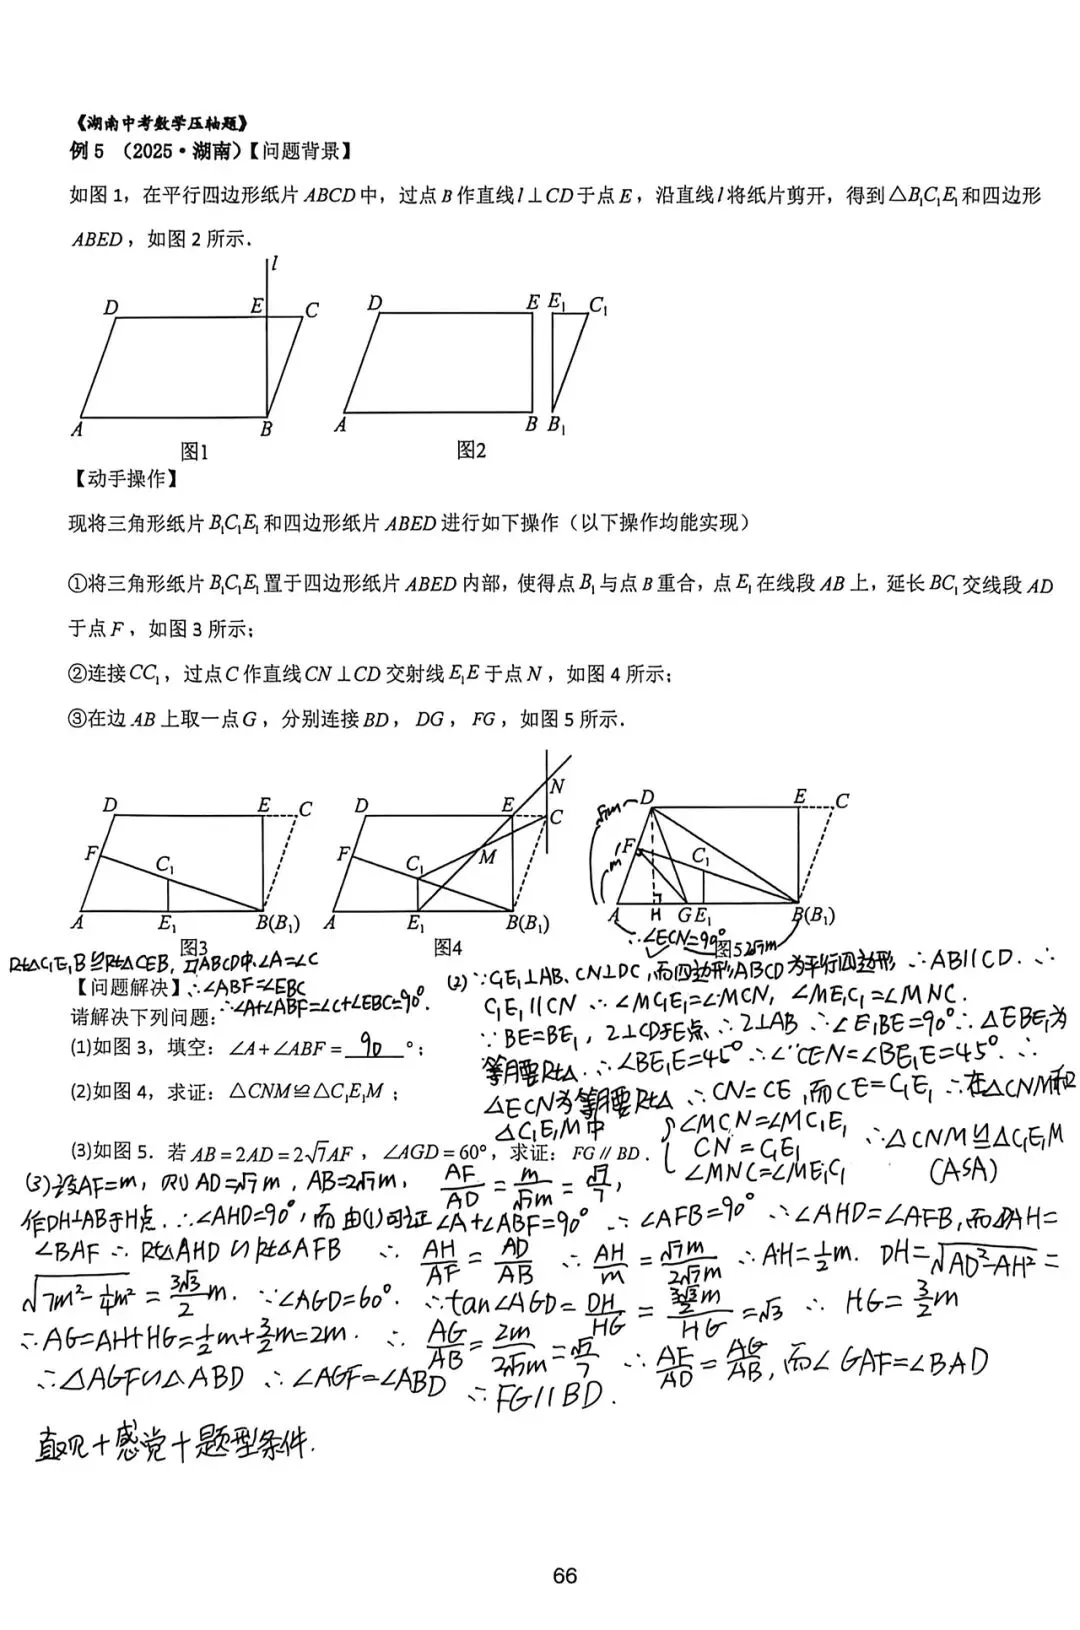 《湖南中考数学压轴题》
例5 （2025·湖南）【问题背景】
如图1，在平行四边形纸片ABCD中，过点B作直线l⊥CD于点E，沿直线l将纸片剪开，得到△B₁C₁E₁和四边形
ABED，如图2所示．
l
D E C
A B
图1
D E E₁ C₁
A B B₁
图2
【动手操作】
现将三角形纸片B₁C₁E₁和四边形纸片ABED进行如下操作（以下操作均能实现）
①将三角形纸片B₁C₁E₁置于四边形纸片ABED内部，使得点B₁与点B重合，点E₁在线段AB上，延长BC₁交线段AD
于点F，如图3所示；
②连接CC₁，过点C作直线CN⊥CD交射线E₁E于点N，如图4所示；
③在边AB上取一点G，分别连接BD，DG，FG，如图5所示．
D E C
F C₁
A E₁ B(B₁)
图3
N
D E C
F C₁ M
A E₁ B(B₁)
图4
√7m D E C
F C₁
m
A H G E₁ B(B₁)
图5 2√7m
Rt△C₁E₁B≌Rt△CEB，▱ABCD中∠A=∠C
【问题解决】∴∠ABF=∠EBC
∴∠A+∠ABF=∠C+∠EBC=90°．
请解决下列问题：
(1)如图3，填空：∠A+∠ABF=90°；
(2)如图4，求证：△CNM≌△C₁E₁M；
(3)如图5．若AB=2AD=2√7AF，∠AGD=60°，求证：FG∥BD．
∴∠ECN=90°
(2)∵C₁E₁⊥AB、CN⊥DC，而四边形ABCD为平行四边形 ∴AB∥CD．∴
C₁E₁∥CN ∴∠MC₁E₁=∠MCN，∠ME₁C₁=∠MNC．
∵BE=BE₁，l⊥CD于E点 ∴l⊥AB ∴∠E₁BE=90°∴△EBE₁为
等腰Rt△ ∴∠BE₁E=45° ∴∠CEN=∠BE₁E=45° ∴
△ECN为等腰Rt△ ∴CN=CE，而CE=C₁E₁ ∴在△CNM和
△C₁E₁M中
∠MCN=∠MC₁E₁
CN=C₁E₁
∠MNC=∠ME₁C₁
∴△CNM≌△C₁E₁M
(ASA)
(3)设AF=m，则AD=√7m，AB=2√7m， AF/AD=m/√7m=√7/7，
作DH⊥AB于H点．∴∠AHD=90°，而由(1)可证∠A+∠ABF=90° ∴∠AFB=90° ∴∠AHD=∠AFB，而∠DAH=
∠BAF ∴Rt△AHD∽Rt△AFB ∴AH/AF=AD/AB ∴AH/m=√7m/2√7m ∴AH=1/2m．DH=√(AD²-AH²)=
√(7m²-1/4m²)=3√3/2m．∵∠AGD=60°．∴tan∠AGD=DH/HG=(3√3/2m)/HG=√3 ∴HG=3/2m
∴AG=AH+HG=1/2m+3/2m=2m．∴AG/AB=2m/2√7m=√7/7 ∴AF/AD=AG/AB，而∠GAF=∠BAD
∴△AGF∽△ABD ∴∠AGF=∠ABD ∴FG∥BD．
直观+感觉+题型条件．
66